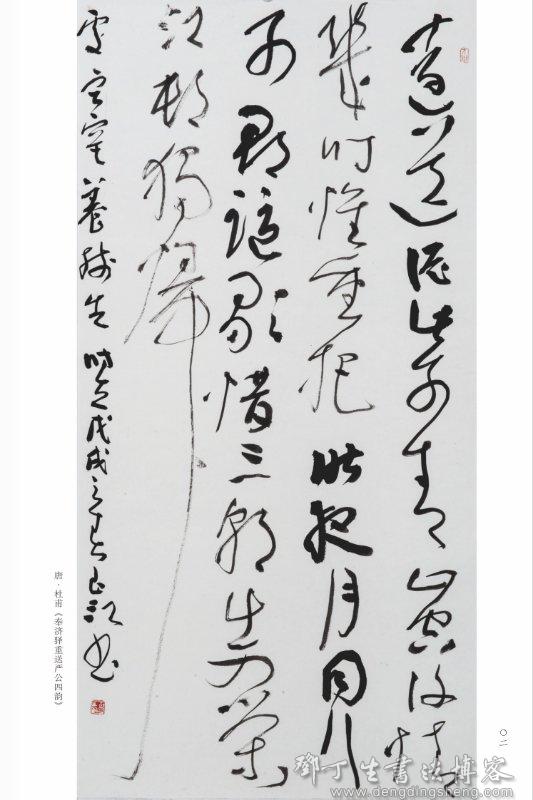 遠送從此別青山空復情
幾時杯重把昨夜月同行
列郡謳歌惜三朝出入榮
江村獨歸
處寂寞養殘生 时在戊戌之春 书
唐·杜甫《奉济驿重送严公四韵》
〇二
鄧丁生書法博客
www.dengdingsheng.com